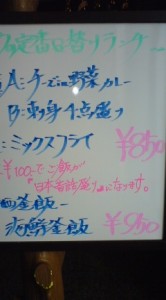 定番日替りランチ
A:チーズin野菜カレー
B:刺身1点盛り
:ミックスフライ
¥850
¥100-でご飯が
"日本昔話盛り"になります。
釜飯
海鮮釜飯 ¥950